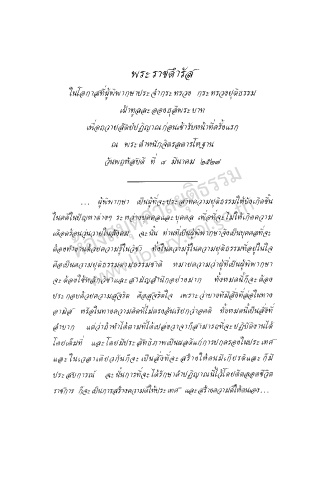 พระราชดำรัส
ในโอกาสที่ผู้พิพากษาประจำกระทรวง กระทรวงยุติธรรม
เฝ้าทูลละอองธุลีพระบาท
เพื่อถวายสัตย์ปฏิญาณก่อนเข้ารับหน้าที่ครั้งแรก
ณ พระตำหนักจิตรลดารโหฐาน
วันพฤหัสบดี ที่ ๘ มีนาคม ๒๕๒๗
... ผู้พิพากษา เป็นผู้ที่จะประสาทความยุติธรรมให้บังเกิดขึ้น
ในคดีในปัญหาต่างๆ ระหว่างบุคคลและบุคคล เพื่อที่จะไม่ให้เกิดความ
เดือดร้อนวุ่นวายในสังคม ฉะนั้น ท่านที่เป็นผู้พิพากษาจึงเป็นบุคคลที่จะ
ต้องทำงานด้วยความรู้ในวิชา ทั้งในความรู้ในความยุติธรรมที่อยู่ในใจ
คือเป็นความยุติธรรมตามธรรมชาติ หมายความว่าผู้ที่เป็นผู้พิพากษา
จะต้องใช้หลักวิชาและสามัญสำนึกอย่างมาก ทั้งหมดนี้ก็จะต้อง
ประกอบด้วยความสุจริต คือสุจริตใจ เพราะว่าบางทีมีสิ่งที่ล่อในทาง
อามิส หรือในทางความคิดที่ไม่ตรงอันเรียกว่าอคติ ทั้งหมดนี้เป็นสิ่งที่
ลำบาก แต่ว่าถ้าทำได้ตามที่ได้เปล่งวาจาก็สามารถที่จะปฏิบัติงานได้
โดยเต็มที่ และโดยมีประสิทธิภาพเป็นผลดีแก่การปกครองในประเทศ
และในเวลาเดียวกันก็จะเป็นสิ่งที่จะสร้างให้ตนมีเกียรติและก็มี
ประสบการณ์ ฉะนั้นการที่จะได้รักษาคำปฏิญาณนี้ไว้โดยตลอดชีวิต
ราชการ ก็จะเป็นการสร้างความดีให้ประเทศ และสร้างความดีให้ตนเอง ...